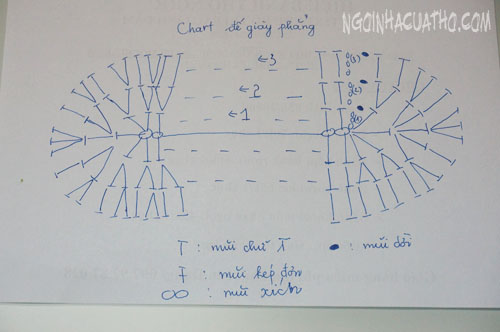 NGOINHACUATHO.COM
Chart đế giày phẳng
← 3
← 2
← 1
T : mũi chữ T
● : mũi dời
Ŧ : mũi kép đơn
∞ : mũi xích